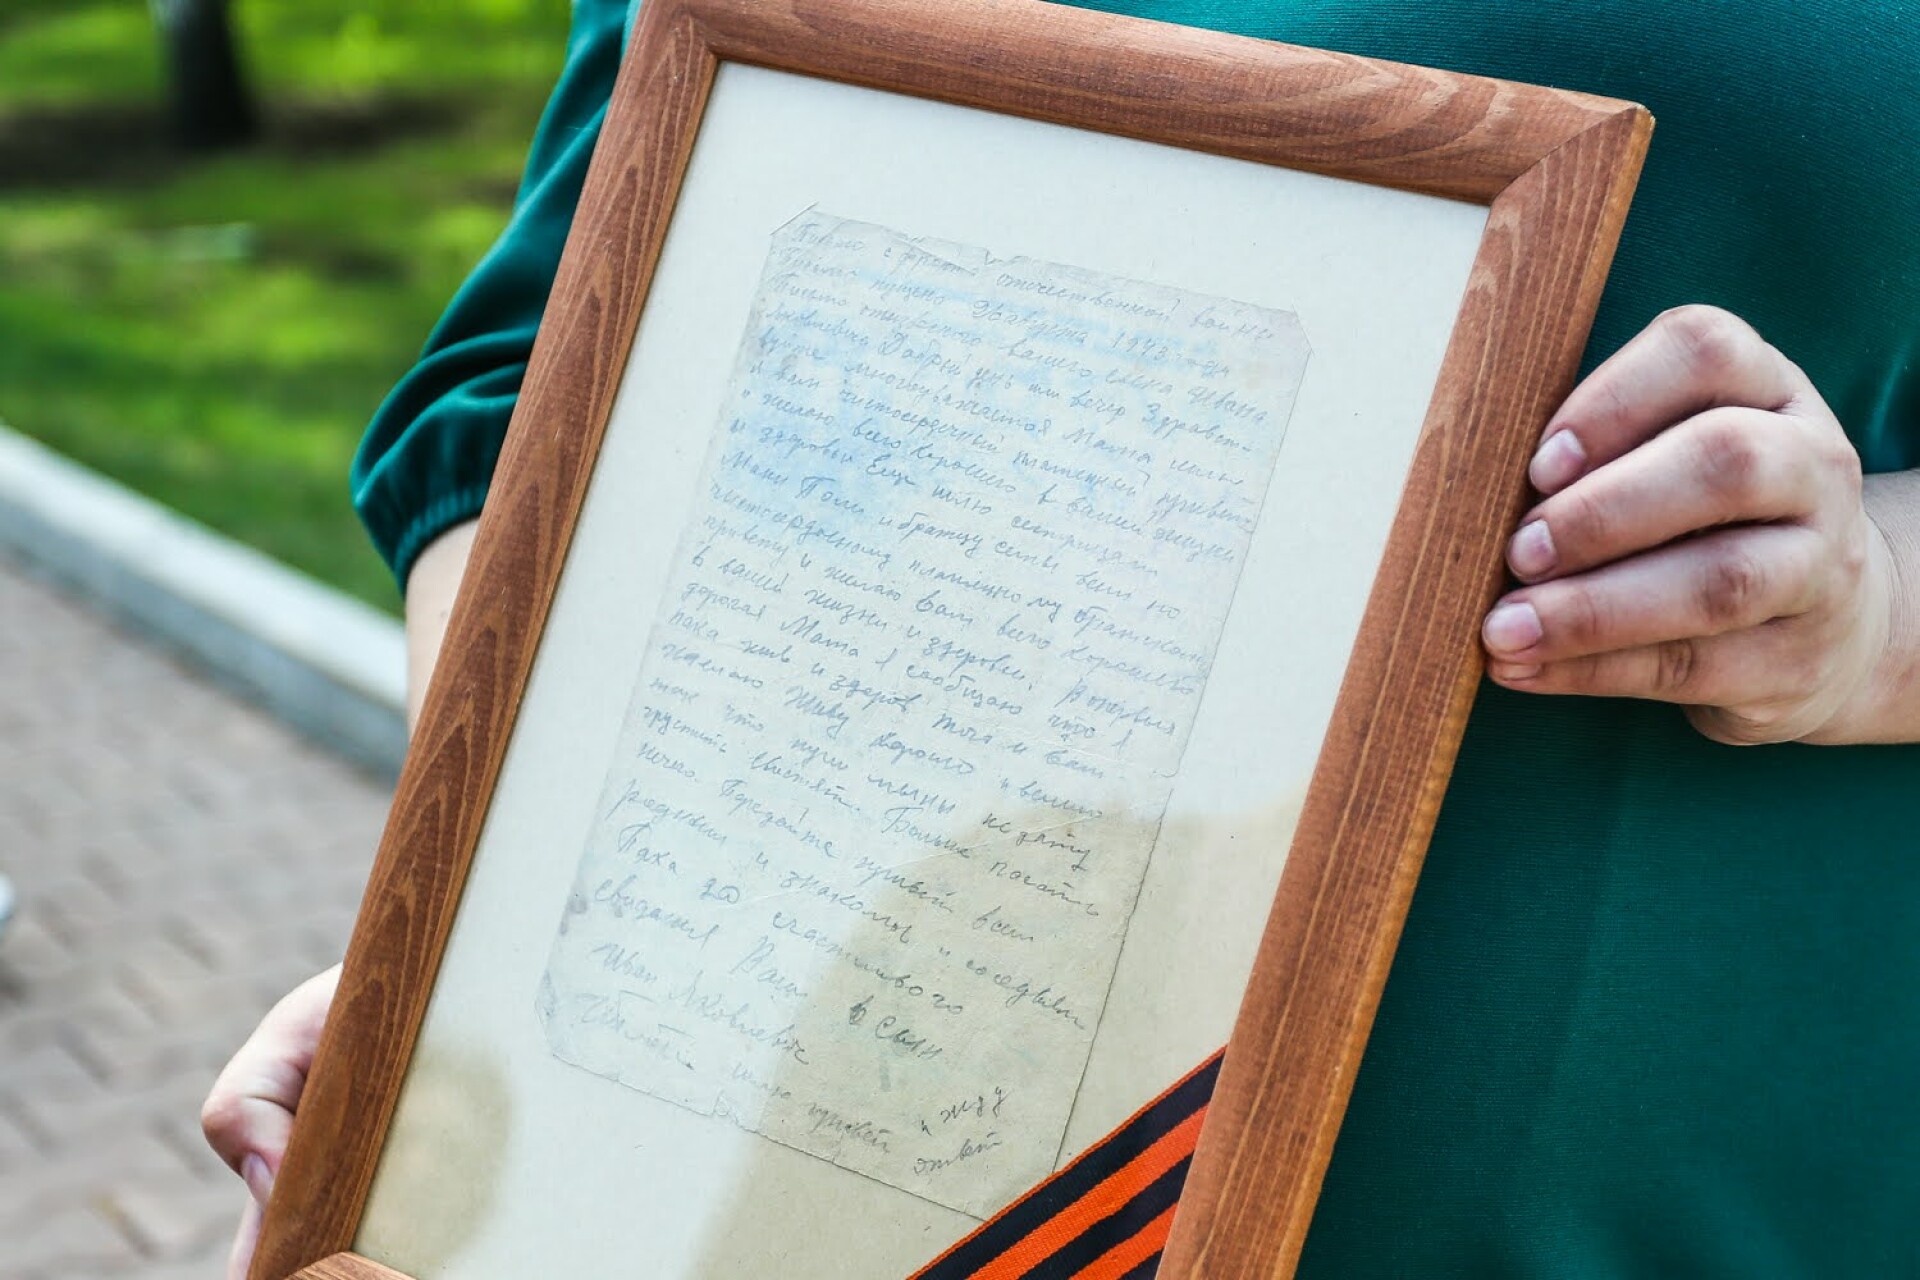 Письмо с фронта отечественной войны
Письмо пущено 26 августа 1943 года
Письмо от вашего сына Ивана
Яковлевича Добрый день или вечер Здравст-
вуйте многоуважаемая Мама шлю
я вам чистосердечный пламенный привет
и желаю всего хорошего в вашей жизни
и здоровьи Еще шлю сестрицам
Мани Поли и братцу сени всем по
чистосердечному пламенному братскому
привету и желаю вам всего хорошего
в вашей жизни и здоровьи. Впервых
дорогая Мама я сообщаю что я
пака жив и здоров тога и вам
желаю Живу хорошо и весело
так что пули мины не дают
грустить свистят. Больше писать
нечего. Передайте привет всем
родным и знакомым и соседям
Пака до счастливого
свидания Ваш сын
Иван Яковлевич
шлю привет и жду
ответ